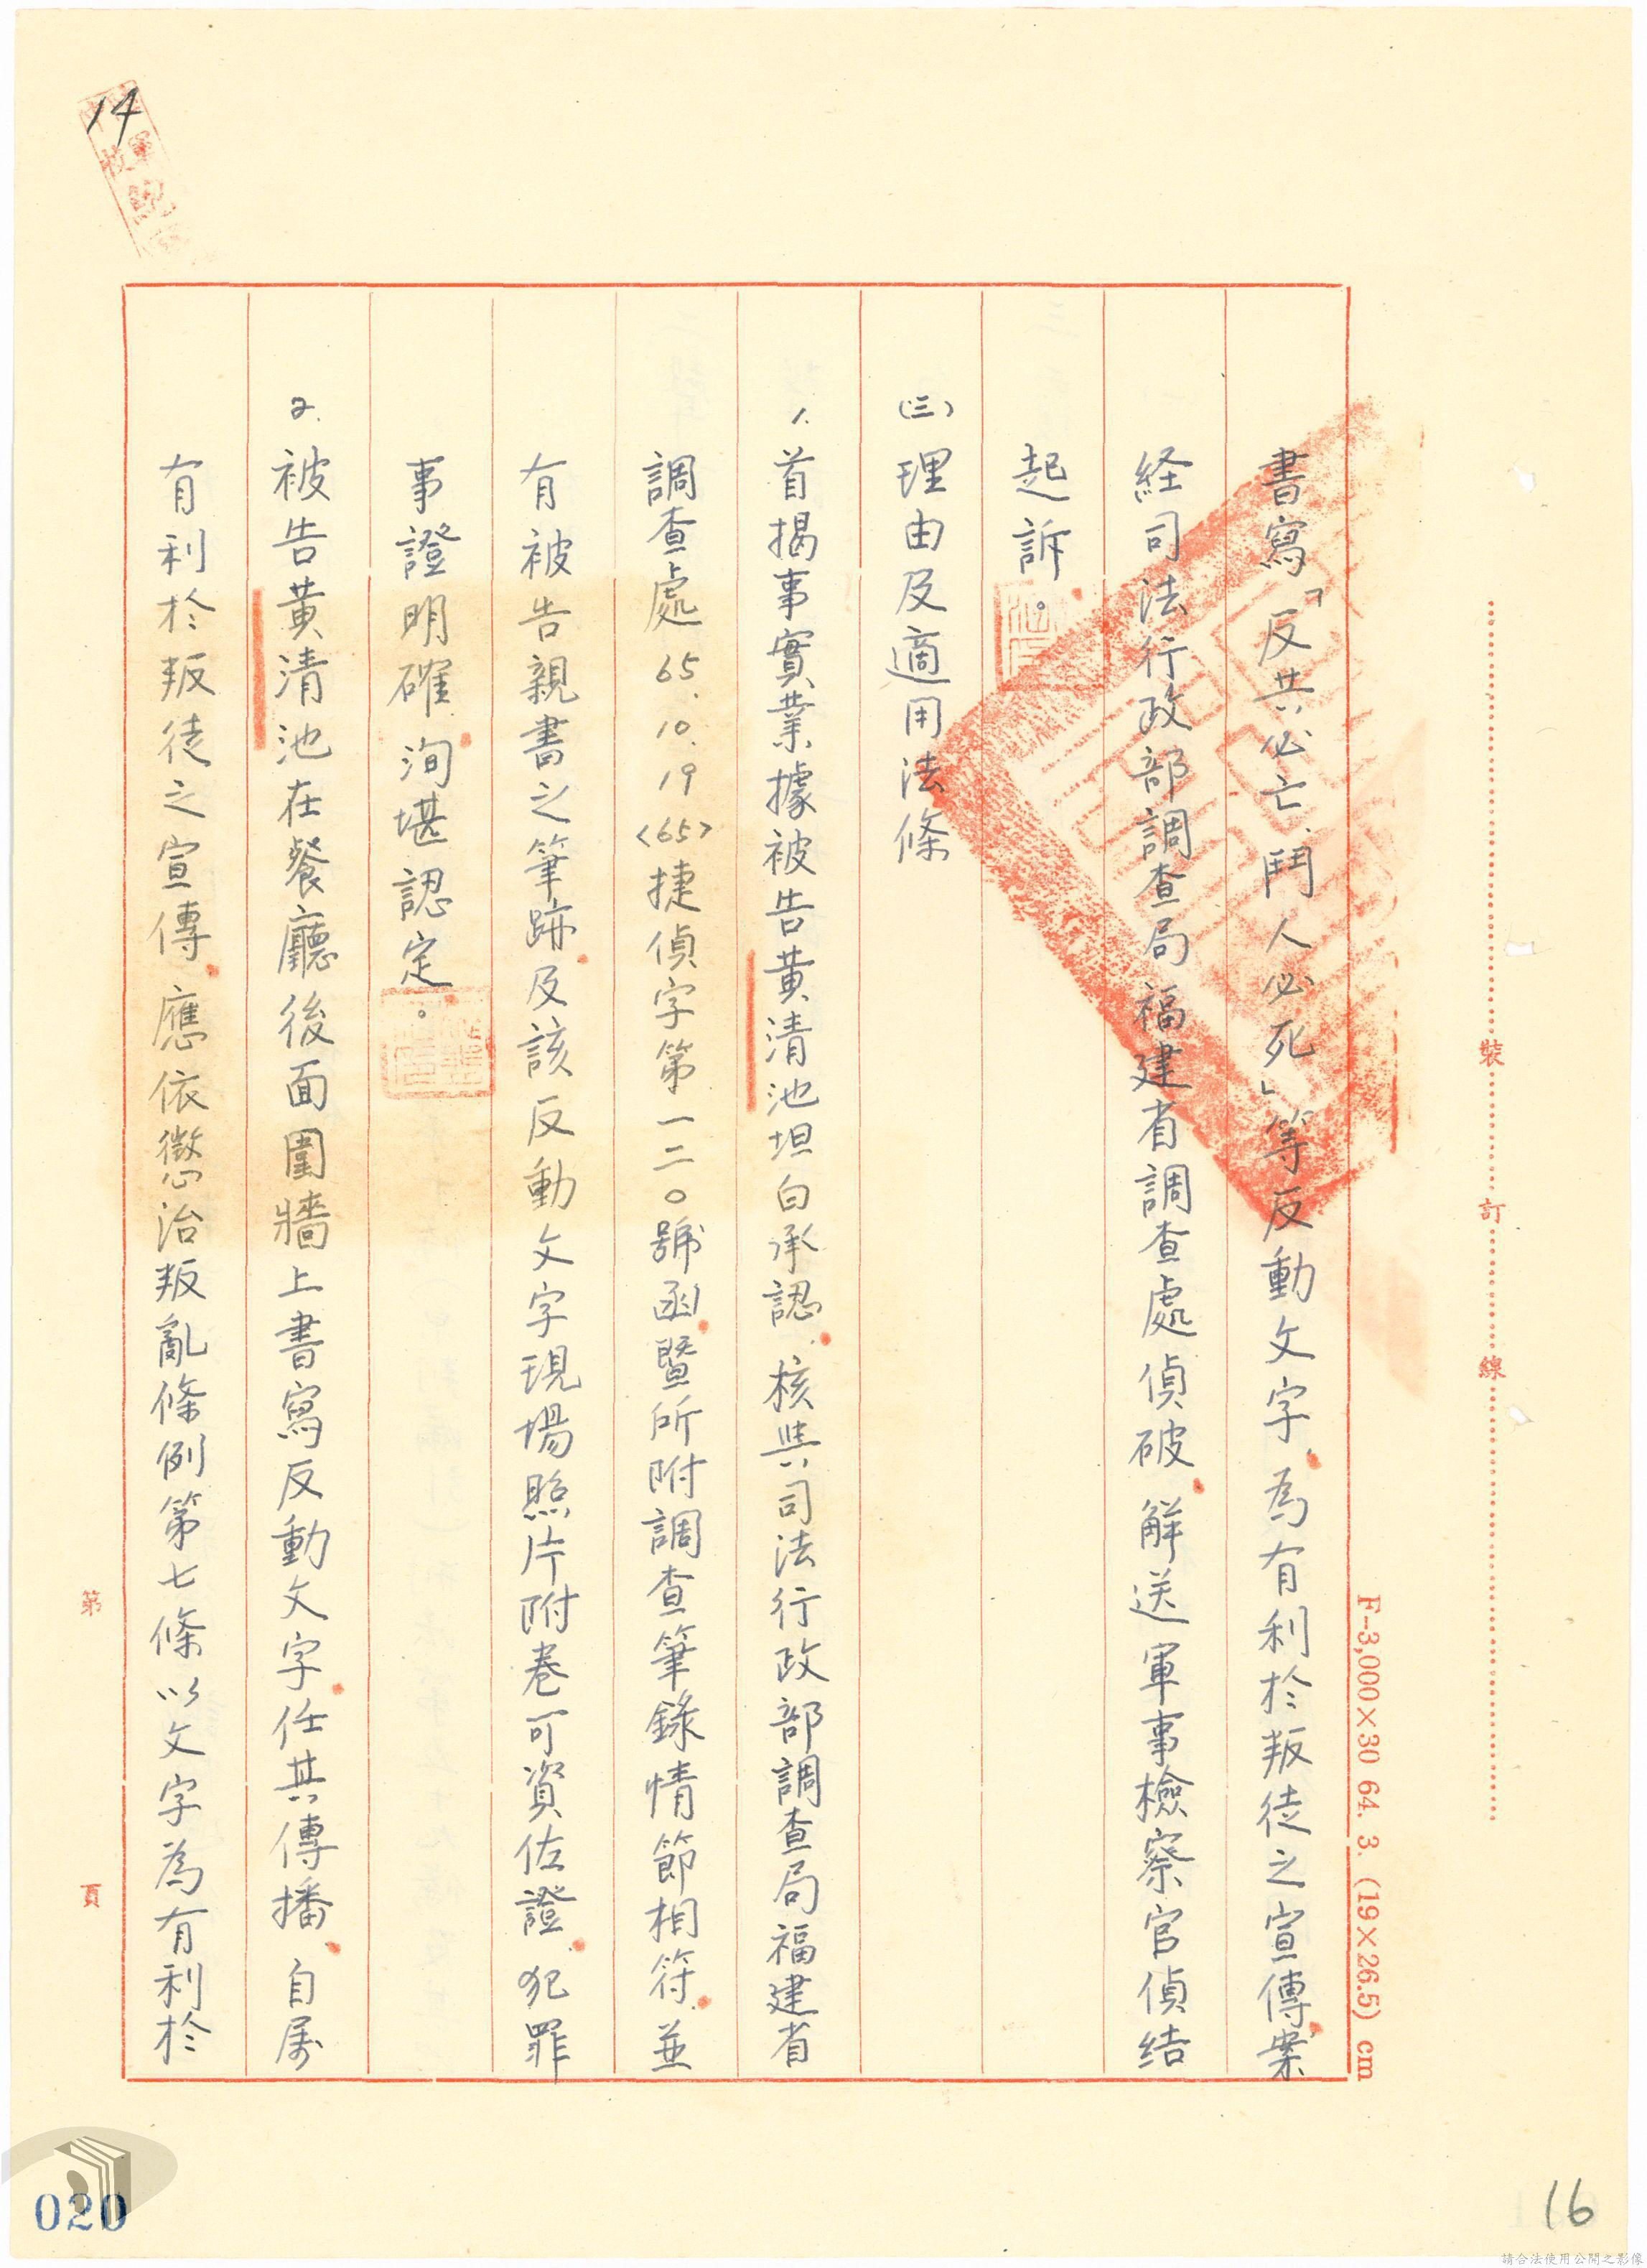 書寫「反共必亡、鬥人必死」等反動文字、為有利於叛徒之宣傳案
経司法行政部調查局福建省調查處偵破、解送軍事檢察官偵结
起訴。
(三)理由及適用法條
1.首揭事實業據被告黃清池坦白承認、核與司法行政部調查局福建省
調查處65.10.19<65>捷偵字第一二〇號函暨所附調查筆錄情節相符、並
有被告親書之筆跡及該反動文字現場照片附卷可資佐證、犯罪
事證明確、洵堪認定。
2.被告黃清池在餐廳後面圍牆上書寫反動文字任其傳播、自屬
有利於叛徒之宣傳、應依懲治叛亂條例第七條以文字為有利於
裝
訂
線
F-3,000×30 64. 3. (19×26.5) cm
第 頁
14
16
020
請合法使用公開之影像